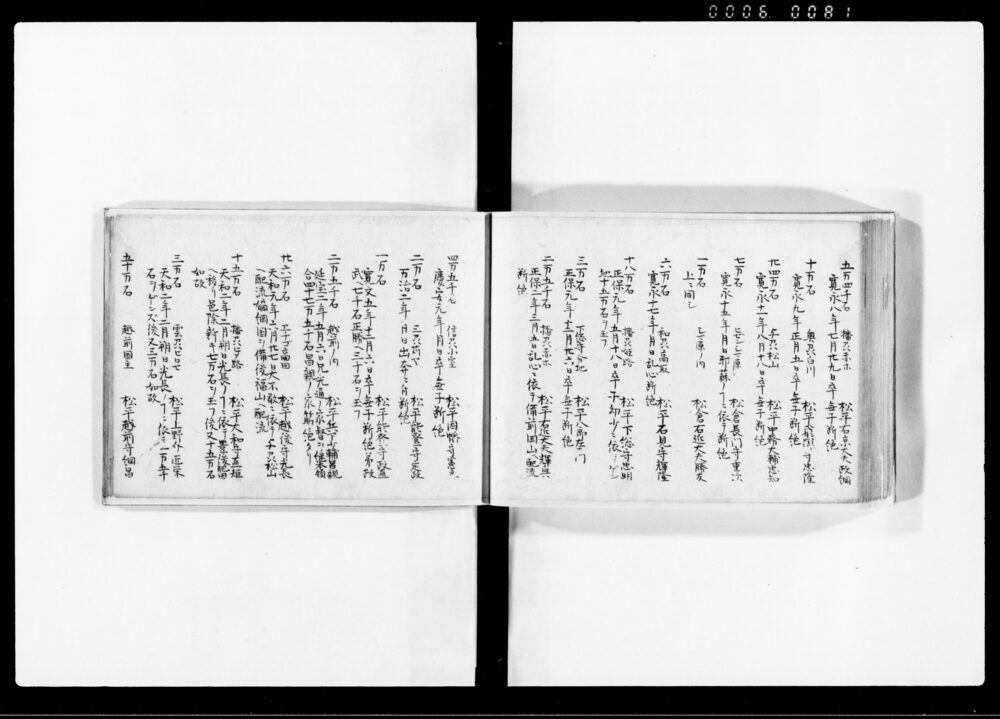 0006 0081
五万四千石 播州赤ホ 松平右京大夫政綱
寛永八年七月九日卒無子断絶
十万石 奥州白川 松平 守忠隆
寛永九年正月五日卒無子断絶
廿四万石 与州松山 松平中務大輔忠知
寛永十一年八月十八日卒無子断絶
七万石 ヒゼン 原 松倉長門守重次
寛永十五年月日耶蘇ノ 依テ断絶
一万石 原ノ内 松倉右近大夫勝友
上ニ同シ
六万石 和州高取 松平石見守輝隆
寛永十七年月日乱心断絶
十八万石 播州姫路 松平下総守忠明
正保元年五月十八日卒子幼少ニ依
地十五万石ヲ玉フ
三万石 下総 地 松平八郎左エ門
正保元年十二月廿六日卒無子断絶
二万五千石 播州赤ホ 松平右近大夫輝興
正保二年三月五日乱心ニ依テ備前岡山ヘ配流
断絶
四万五千石 信州小室 松平因幡守憲良
慶安元年月日卒無子断絶
二万石 三州 松平能登守定政
万治二年月日出奔ニ付断絶
一万石 松平能登守政
寛文五年十二月六日卒無子断絶弟政
武ヘ七千石正勝ヘ三千石ヲ玉フ
二万五千石 越前ノ内 松平兵部少輔昌親
延宝二年五月六日兄光通ノ家督ヲ継本領
合四十七万五千石昌親ノ家筋絶タリ
廿六万石 エチゴ高田 松平越後守光長
天和元年六月廿七日 不 ニ依テ予州松山
ヘ配流 綱国ヲ備後福山ヘ配流
十五万石 播州ヒメ路 松平大和守直矩
天和二年二月朔日光長ノ ニ依テ豊後日田
ヘ移リ 除新キ七万石ヲ玉フ後又五万石
如故
三万石 雲州ヒロセ 松平上野介近栄
天和二年二月朔日光長ノ ニ依テ一万五千
石ヲゲンズ後又三万石如故
五十万石 越前国主 松平越前守綱昌